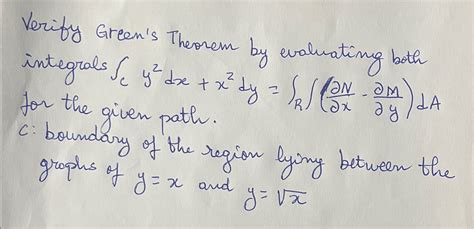 Verify Green's Theorem by evaluating both
integrals ∫_C y² dx + x² dy = ∫_R∫ (∂N/∂x - ∂M/∂y) dA
for the given path.
C: boundary of the region lying between the
graphs of y = x and y = √x